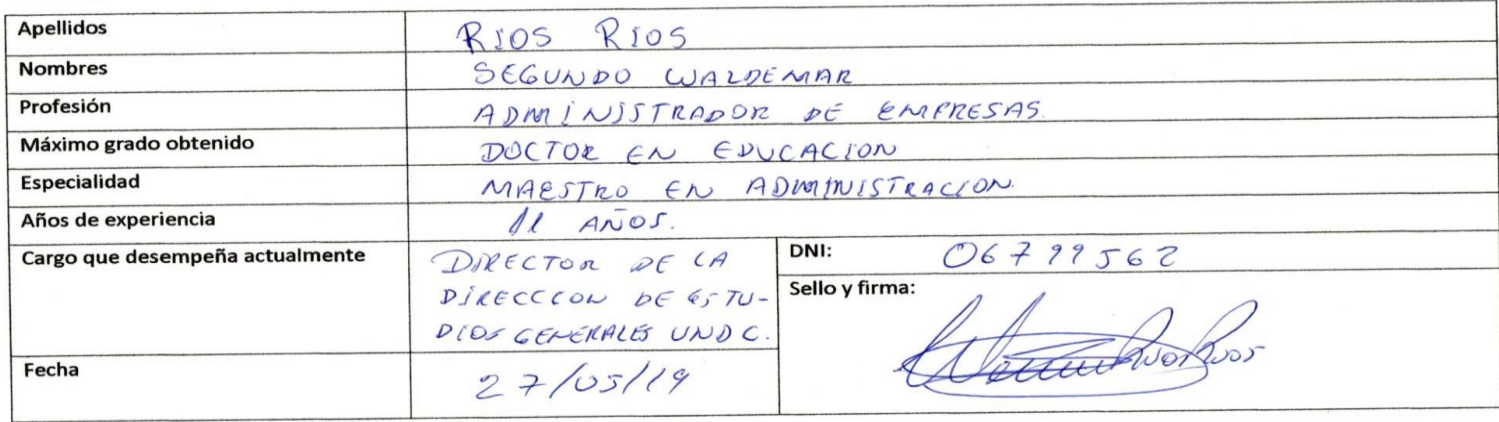 Apellidos RIOS RIOS
Nombres SEGUNDO WALDEMAR
Profesión ADMINISTRADOR DE EMPRESAS.
Máximo grado obtenido DOCTOR EN EDUCACION
Especialidad MAESTRO EN ADMINISTRACION.
Años de experiencia 11 AÑOS.
Cargo que desempeña actualmente DIRECTOR DE LA
DIRECCCION DE ESTU-
DIOS GENERALES UNDC.
DNI: 06799562
Sello y firma:
Fecha 27/05/19